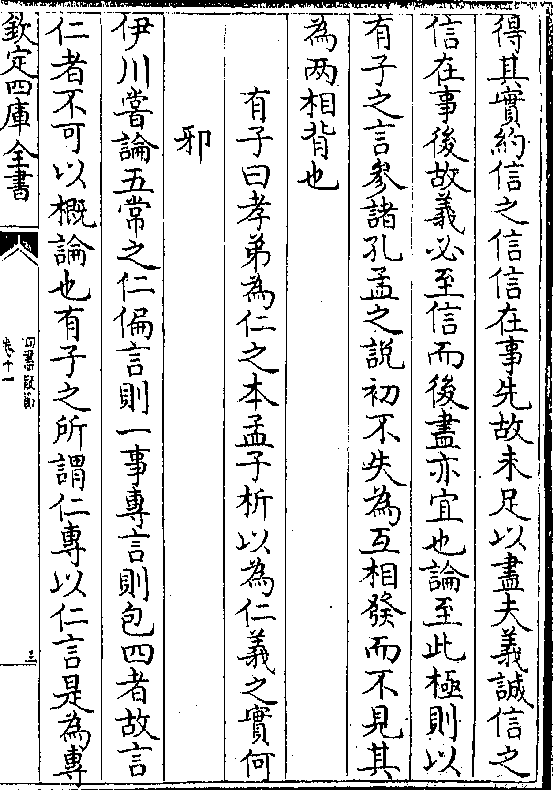 得其實約信之信信在事先故未足以盡夫義誠信之
信在事後故義必至信而後盡亦宜也論至此極則以
有子之言參諸孔孟之說初不失為互相發而不見其
為两相背也
有子曰孝弟為仁之本孟子析以為仁義之實何
邪
伊川嘗論五常之仁偏言則一事專言則包四者故言
仁者不可以概論也有子之所謂仁專以仁言是為專
欽定四庫全書
卷十一
三